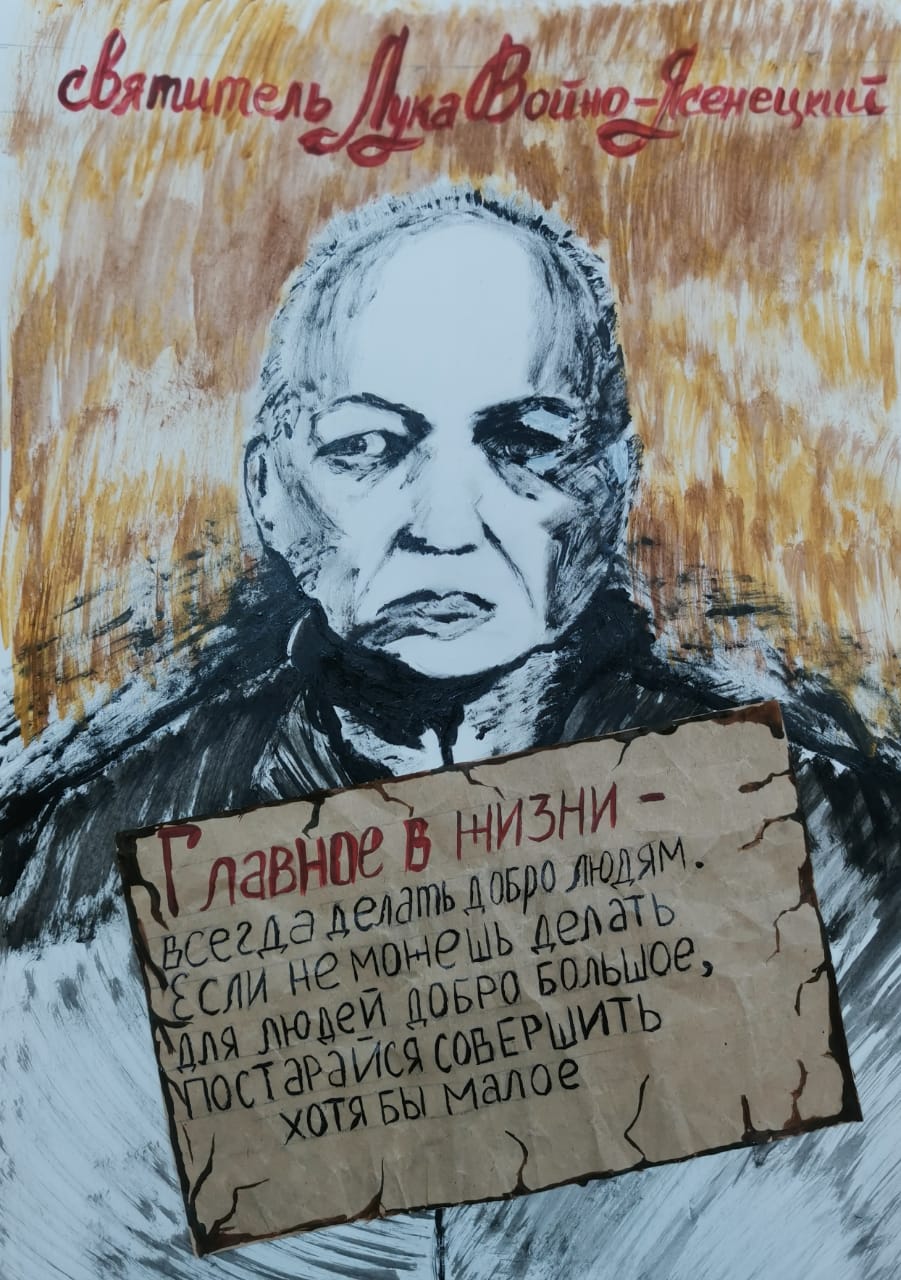 святитель Лука Войно-Ясенецкий
Главное в жизни -
всегда делать добро людям.
Если не можешь делать
для людей добро большое,
постарайся совершить
хотя бы малое